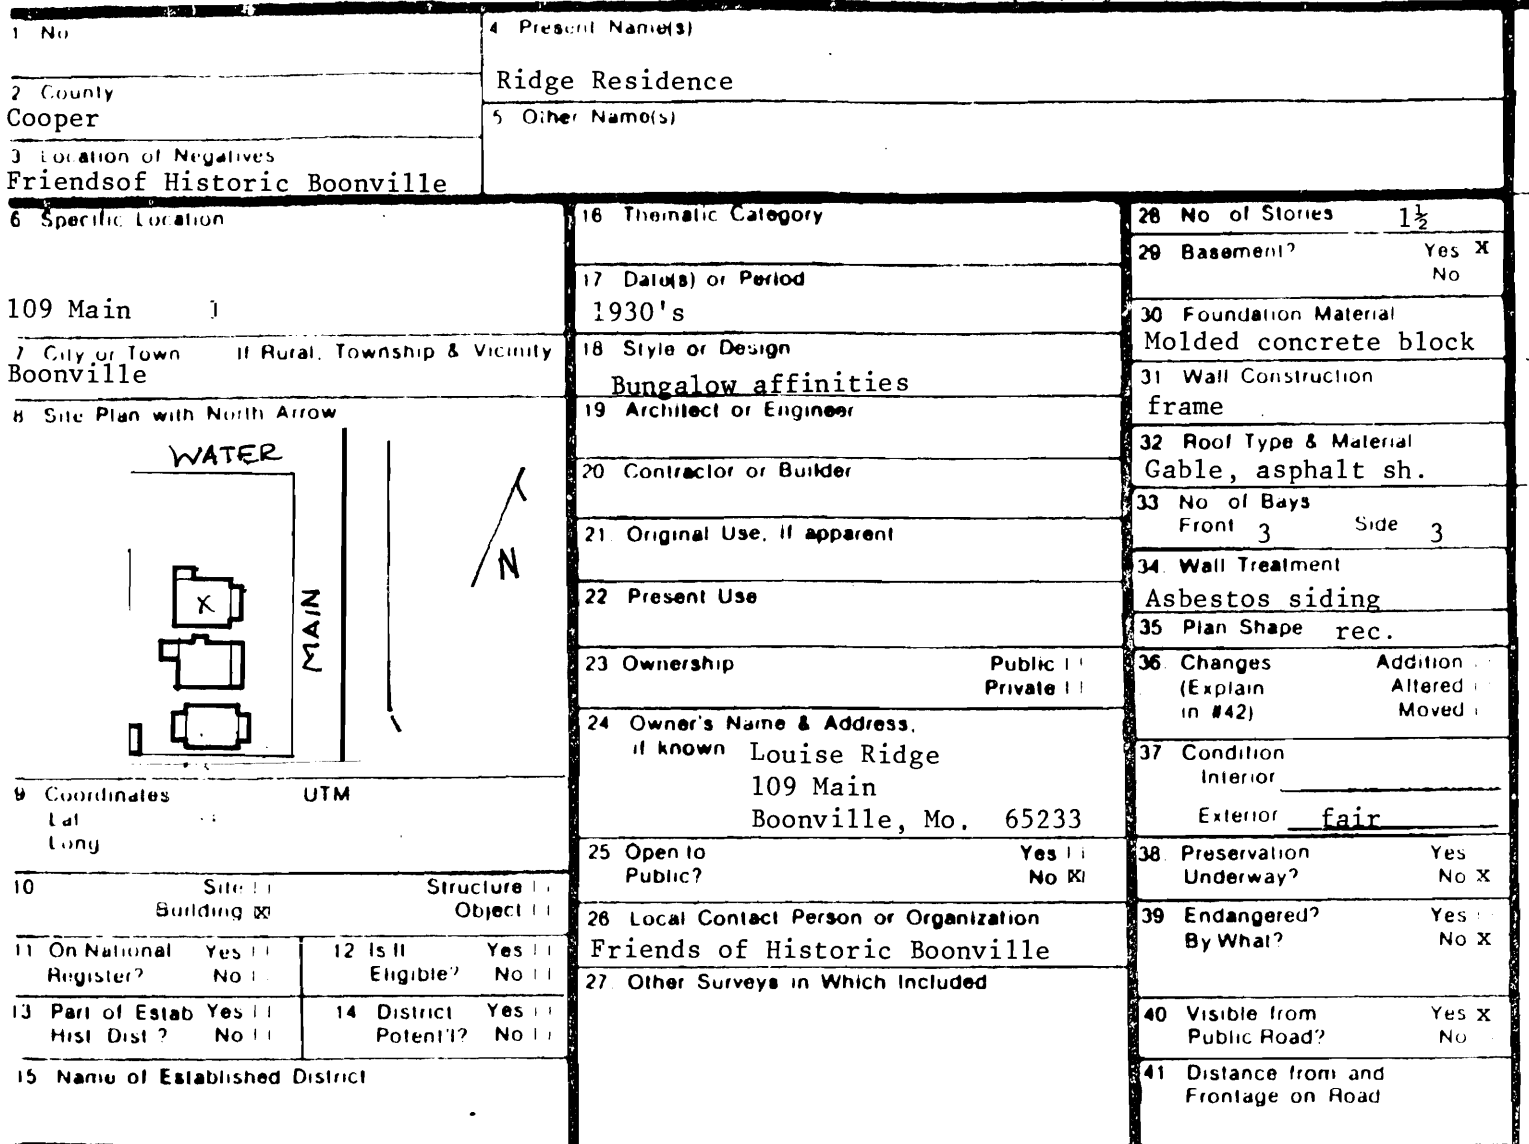 1 No
4 Present Name(s)
Ridge Residence
2 County
Cooper
5 Other Name(s)
3 Location of Negatives
Friendsof Historic Boonville
6 Specific Location
109 Main
7 City or Town If Rural, Township & Vicinity
Boonville
8 Site Plan with North Arrow
WATER
MAIN
N
X
9 Coordinates UTM
Lat
Long
10 Site
Structure
Building X
Object
11 On National Register? Yes
No
12 Is It Eligible? Yes
No
13 Part of Estab Hist Dist ? Yes
No
14 District Potent'l? Yes
No
15 Name of Established District
16 Thematic Category
17 Date(s) or Period
1930's
18 Style or Design
Bungalow affinities
19 Architect or Engineer
20 Contractor or Builder
21 Original Use, if apparent
22 Present Use
23 Ownership Public
Private
24 Owner's Name & Address,
if known Louise Ridge
109 Main
Boonville, Mo. 65233
25 Open to Yes
Public? No X
26 Local Contact Person or Organization
Friends of Historic Boonville
27 Other Surveys in Which Included
28 No of Stories 1½
29 Basement? Yes X
No
30 Foundation Material
Molded concrete block
31 Wall Construction
frame
32 Roof Type & Material
Gable, asphalt sh.
33 No of Bays
Front 3 Side 3
34. Wall Treatment
Asbestos siding
35 Plan Shape rec.
36. Changes Addition
(Explain Altered
in #42) Moved
37 Condition
Interior
Exterior fair
38. Preservation Yes
Underway? No X
39 Endangered? Yes
By What? No X
40 Visible from Yes X
Public Road? No
41 Distance from and
Frontage on Road